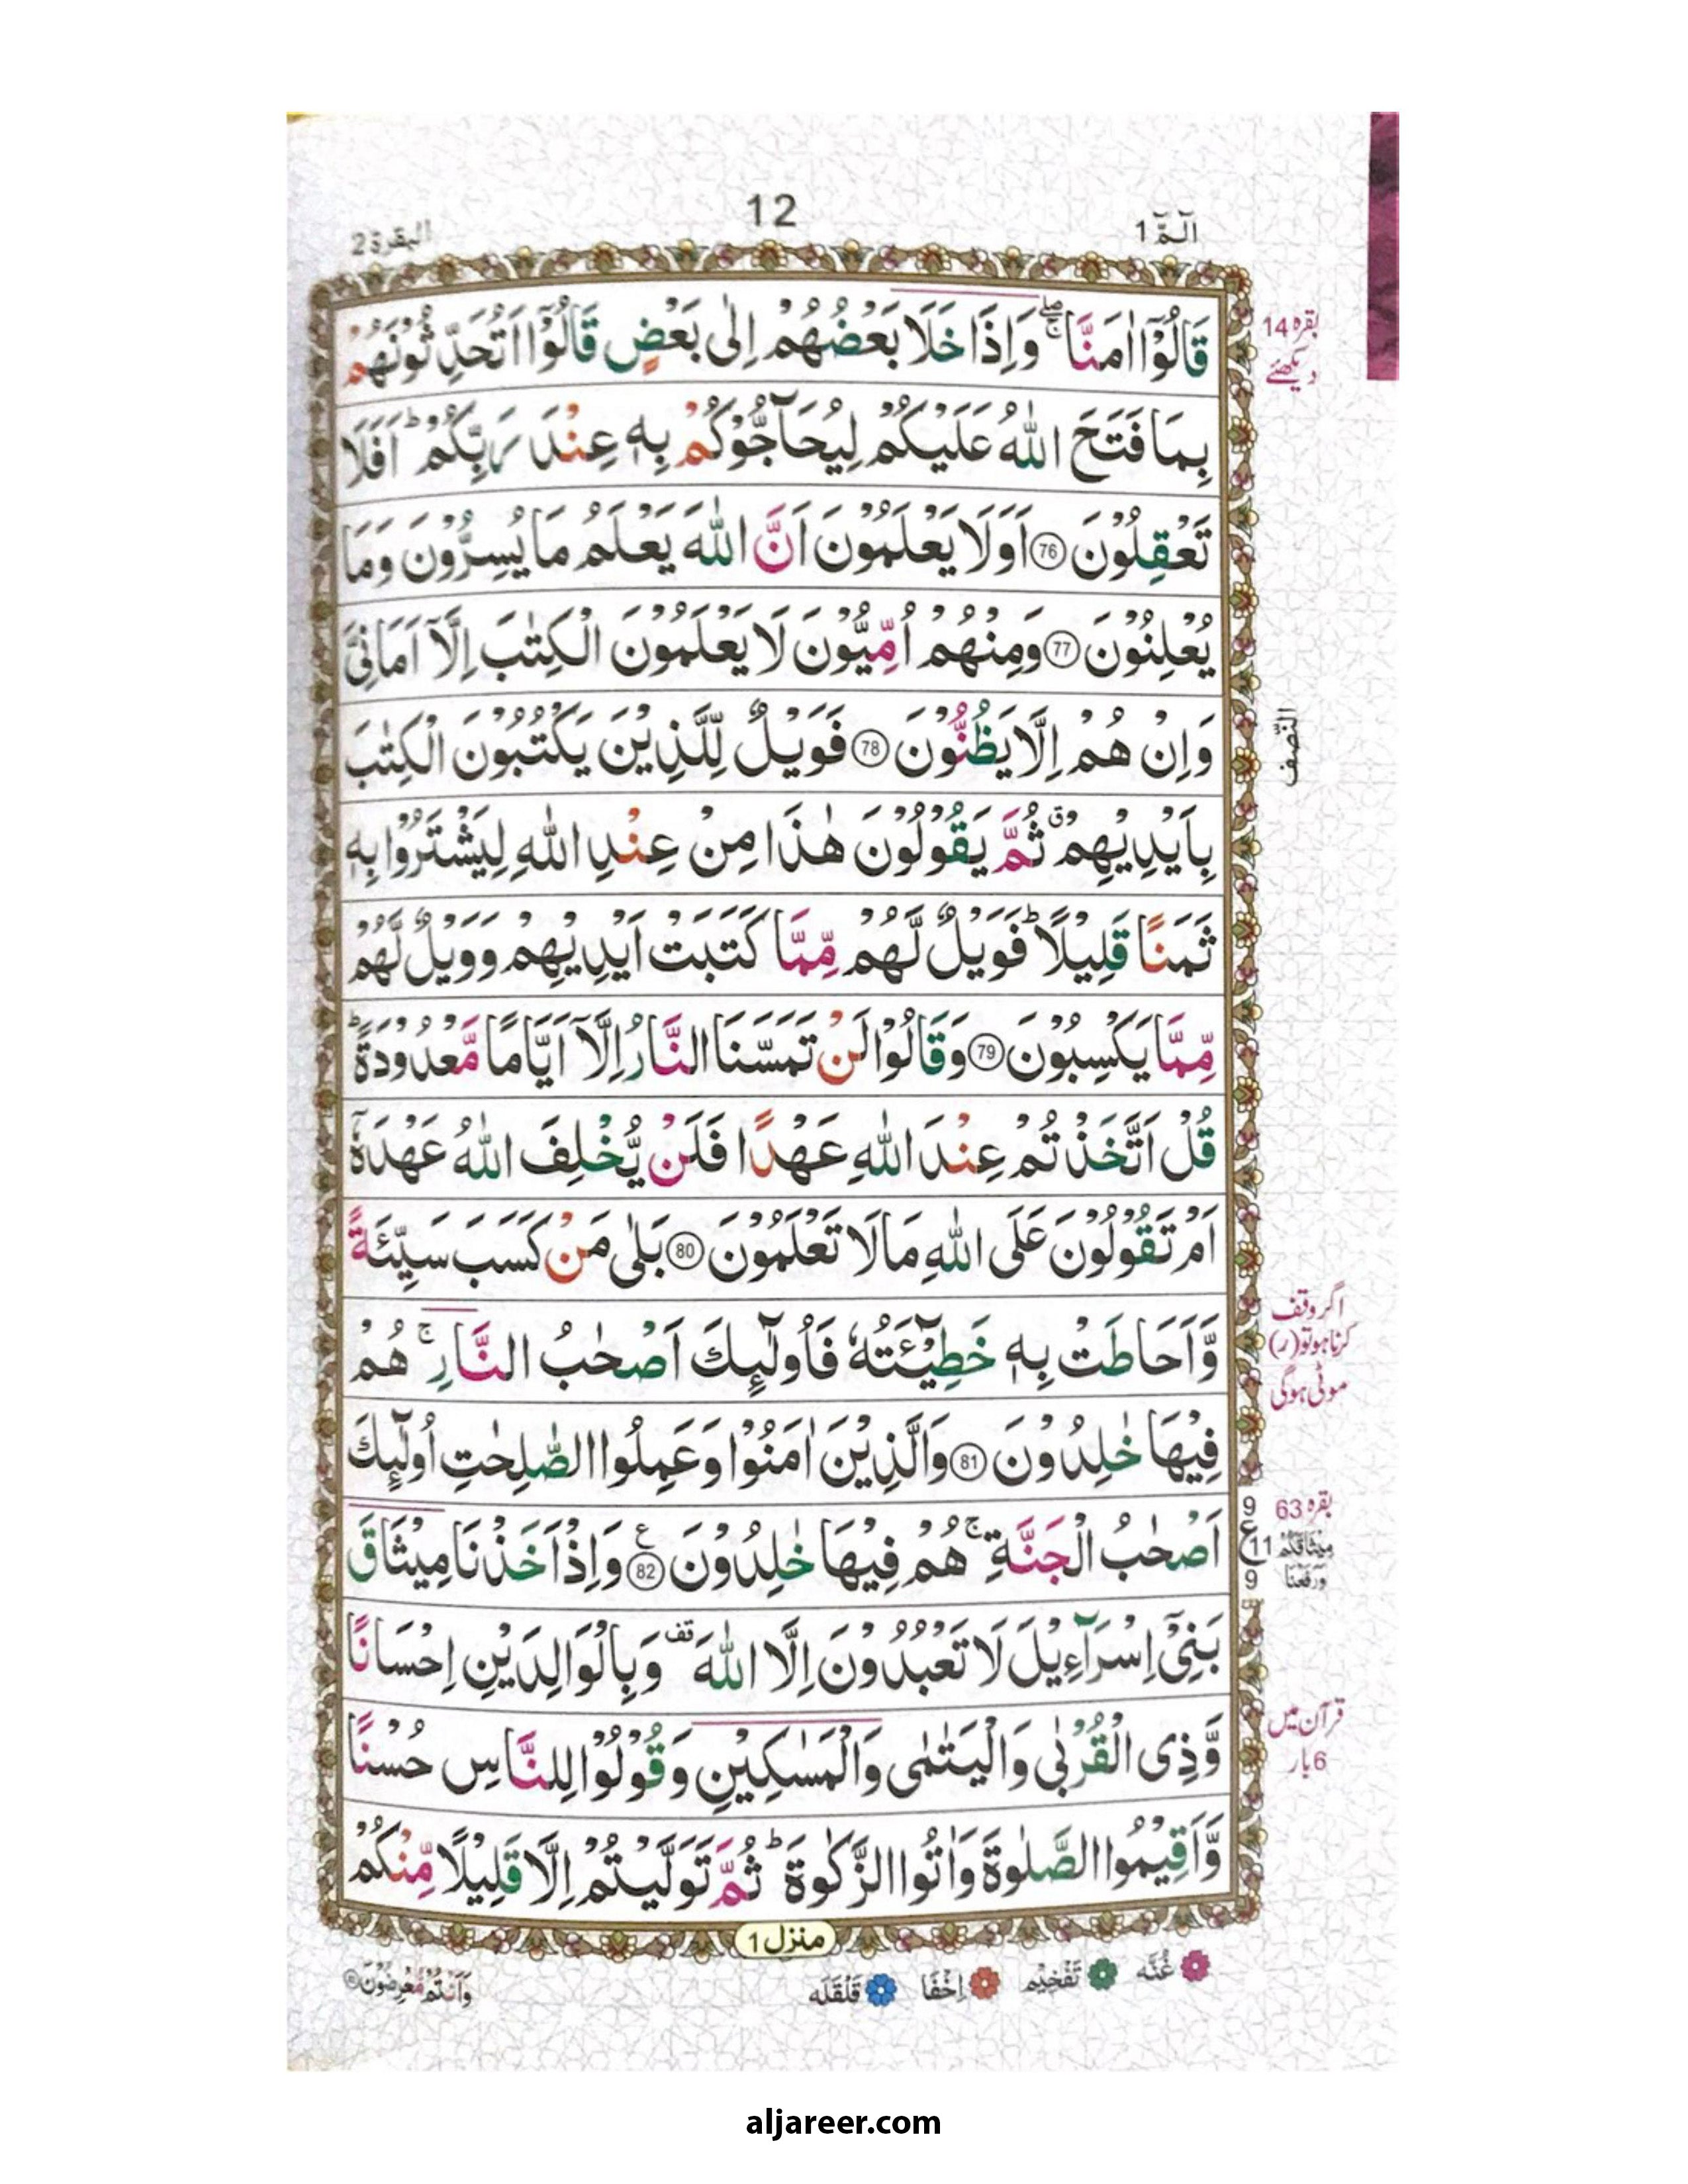 الٓمّٓ 1
12
البقرة 2
قَالُوْۤا اٰمَنَّا ۖۚ وَاِذَا خَلَا بَعْضُهُمْ اِلٰى بَعْضٍ قَالُوْۤا اَتُحَدِّثُوْنَهُمْ
بِمَا فَتَحَ اللّٰهُ عَلَيْكُمْ لِيُحَآجُّوْكُمْ بِهٖ عِنْدَ رَبِّكُمْ ؕ اَفَلَا
تَعْقِلُوْنَ 76 اَوَلَا يَعْلَمُوْنَ اَنَّ اللّٰهَ يَعْلَمُ مَا يُسِرُّوْنَ وَمَا
يُعْلِنُوْنَ 77 وَمِنْهُمْ اُمِّيُّوْنَ لَا يَعْلَمُوْنَ الْكِتٰبَ اِلَّاۤ اَمَانِيَّ
وَاِنْ هُمْ اِلَّا يَظُنُّوْنَ 78 فَوَيْلٌ لِّلَّذِيْنَ يَكْتُبُوْنَ الْكِتٰبَ
بِاَيْدِيْهِمْ ۗ ثُمَّ يَقُوْلُوْنَ هٰذَا مِنْ عِنْدِ اللّٰهِ لِيَشْتَرُوْا بِهٖ
ثَمَنًا قَلِيْلًا ؕ فَوَيْلٌ لَّهُمْ مِّمَّا كَتَبَتْ اَيْدِيْهِمْ وَوَيْلٌ لَّهُمْ
مِّمَّا يَكْسِبُوْنَ 79 وَقَالُوْا لَنْ تَمَسَّنَا النَّارُ اِلَّاۤ اَيَّامًا مَّعْدُوْدَةً ؕ
قُلْ اَتَّخَذْتُمْ عِنْدَ اللّٰهِ عَهْدًا فَلَنْ يُّخْلِفَ اللّٰهُ عَهْدَهٗۤ
اَمْ تَقُوْلُوْنَ عَلَى اللّٰهِ مَا لَا تَعْلَمُوْنَ 80 بَلٰى مَنْ كَسَبَ سَيِّئَةً
وَّاَحَاطَتْ بِهٖ خَطِيْٓئَتُهٗ فَاُولٰٓئِكَ اَصْحٰبُ النَّارِ ۚ هُمْ
فِيْهَا خٰلِدُوْنَ 81 وَالَّذِيْنَ اٰمَنُوْا وَعَمِلُوا الصّٰلِحٰتِ اُولٰٓئِكَ
اَصْحٰبُ الْجَنَّةِ ۚ هُمْ فِيْهَا خٰلِدُوْنَ 82 ع وَاِذْ اَخَذْنَا مِيْثَاقَ
بَنِيْۤ اِسْرَآءِيْلَ لَا تَعْبُدُوْنَ اِلَّا اللّٰهَ قف وَبِالْوَالِدَيْنِ اِحْسَانًا
وَّذِى الْقُرْبٰى وَالْيَتٰمٰى وَالْمَسٰكِيْنِ وَقُوْلُوْا لِلنَّاسِ حُسْنًا
وَّاَقِيْمُوا الصَّلٰوةَ وَاٰتُوا الزَّكٰوةَ ؕ ثُمَّ تَوَلَّيْتُمْ اِلَّا قَلِيْلًا مِّنْكُمْ
بقرہ 14
دیکھئے
النّصف
اگر وقف
کرنا ہو تو (ر)
موٹی ہوگی
9
ع 11
9
بقرہ 63
مِيْثَاقَكُمْ
وَرَفَعْنَا
قرآن میں
6 بار
منزل 1
غُنَّه
تَفْخِيْم
اِخْفَا
قَلْقَلَه
وَاَنْتُمْ مُّعْرِضُوْنَ
aljareer.com